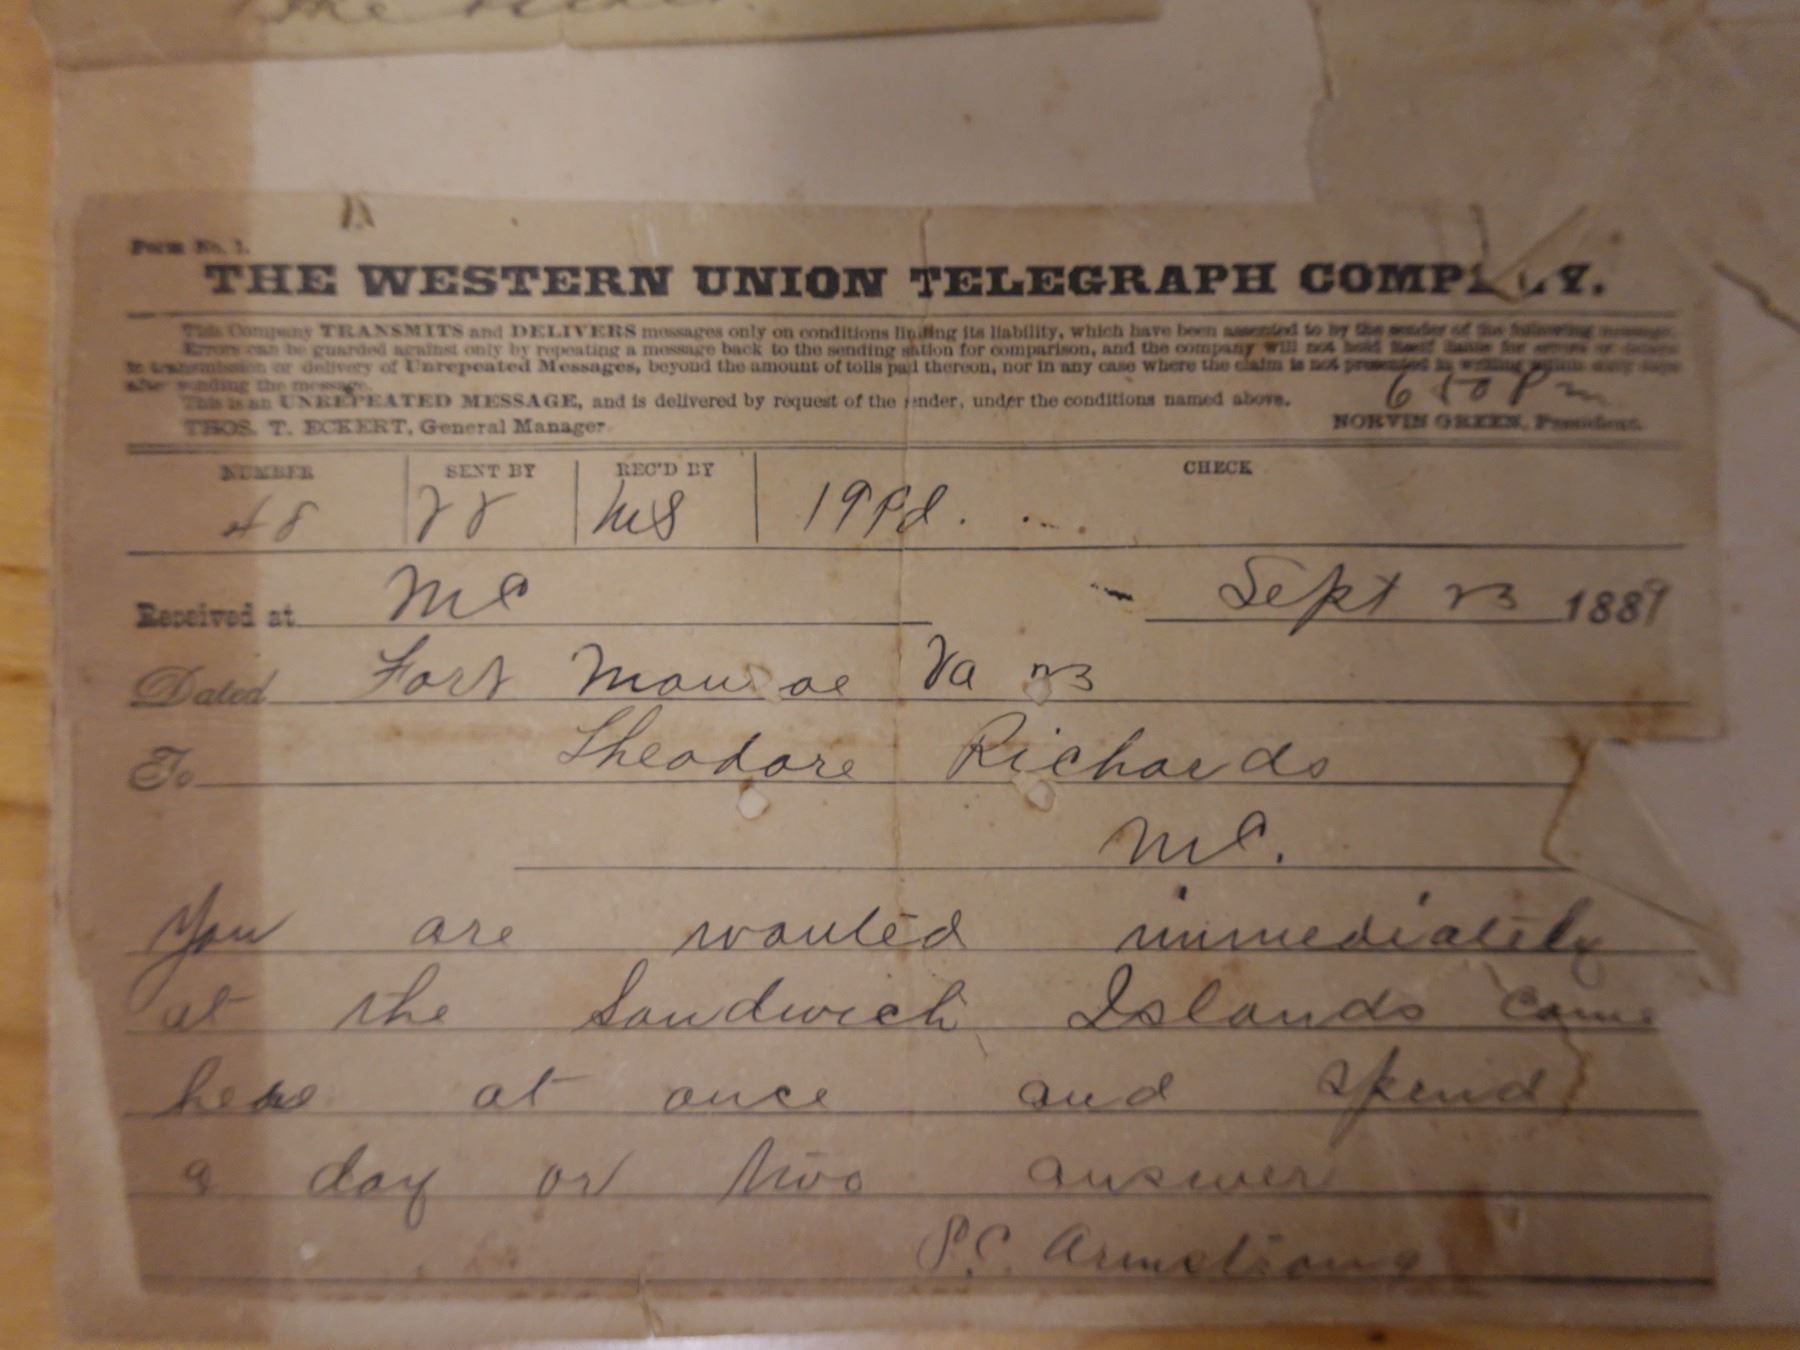 Form No. 1.
THE WESTERN UNION TELEGRAPH COMP Y.
This Company TRANSMITS and DELIVERS messages only on conditions limiting its liability, which have been assented to by the sender of the following message.
Errors can be guarded against only by repeating a message back to the sending station for comparison, and the company will not hold itself liable for errors or delays
in transmission or delivery of Unrepeated Messages, beyond the amount of tolls paid thereon, nor in any case where the claim is not presented in writing within sixty days
after sending the message.
This is an UNREPEATED MESSAGE, and is delivered by request of the sender, under the conditions named above.
6 50 Pm
THOS. T. ECKERT, General Manager NORVIN GREEN, President.
NUMBER SENT BY REC'D BY CHECK
48 MS 19 Pd.
Received at MC Sept 23 1889
Dated Fort Monroe Va 23
To Theodore Richards
MC.
You are wanted immediately
at the Sandwich Islands come
here at once and spend
a day or two answer
S.C. Armstrong